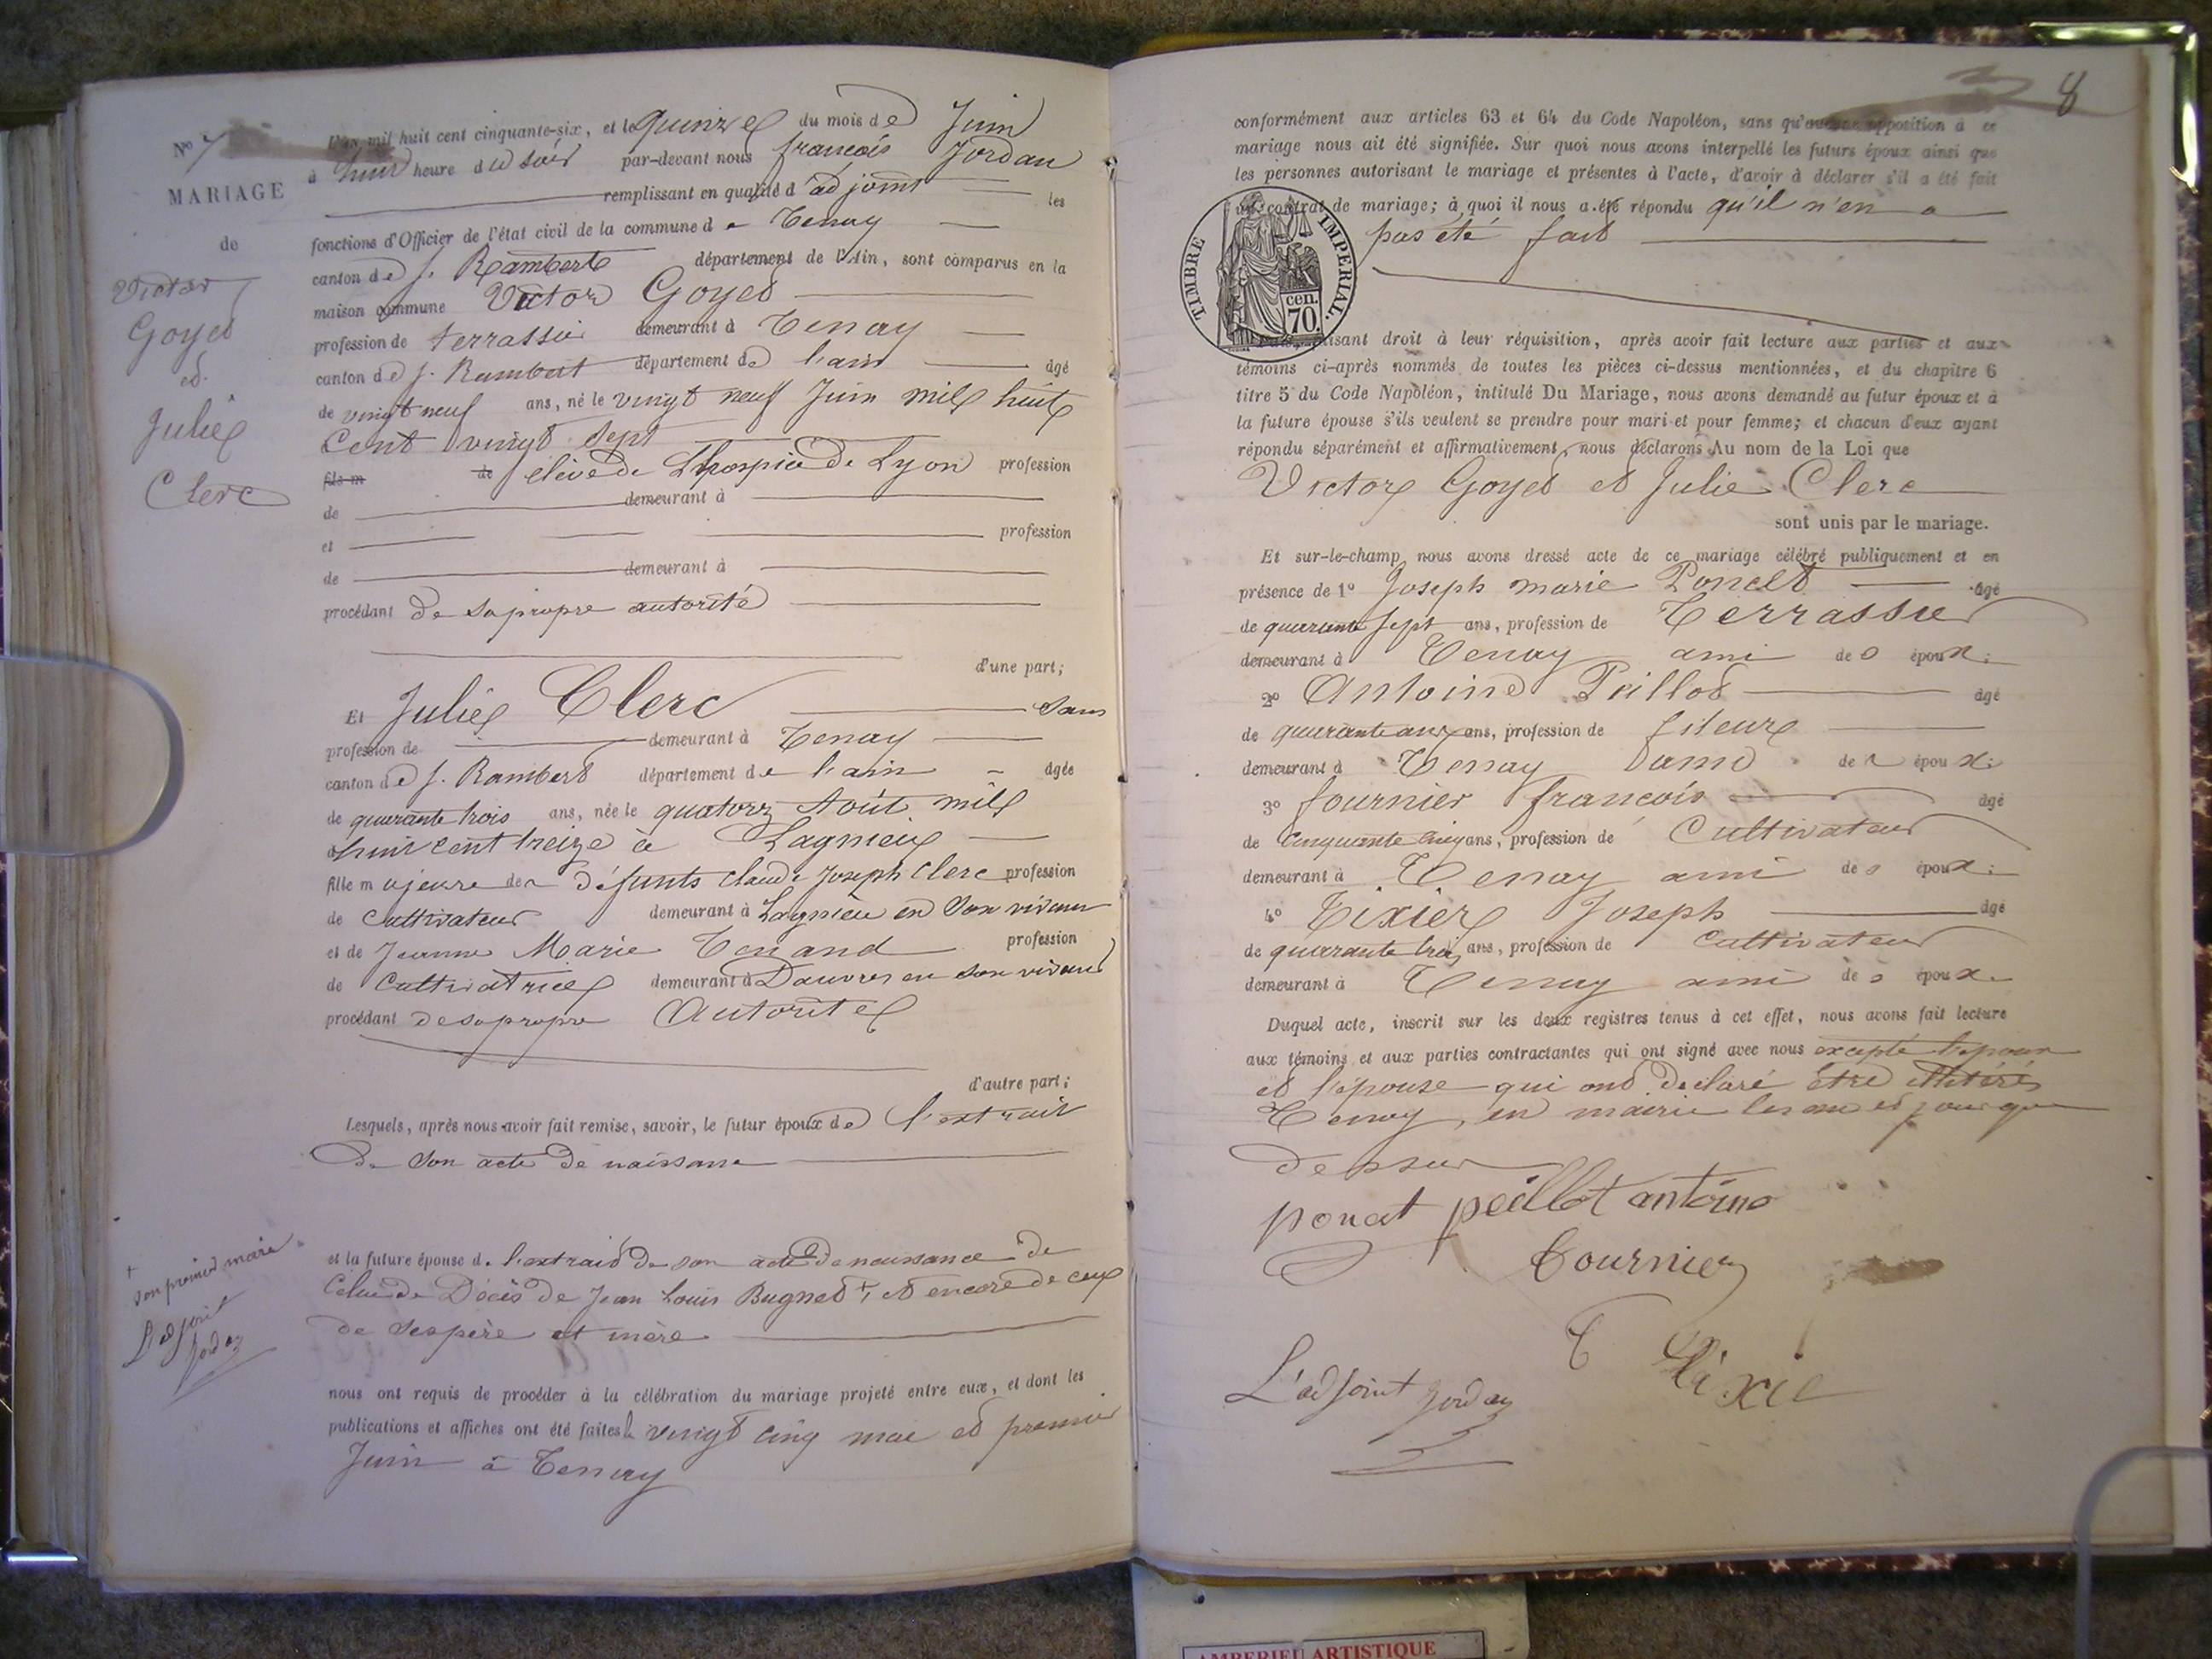 No 7
MARIAGE
de
Victor
Goyet
et
Julie
Clerc
L'an mil huit cent cinquante-six, et le quinze du mois de Juin
à huit heure du soir par-devant nous françois Jordan
remplissant en qualité d'adjoint les
fonctions d'Officier de l'état civil de la commune de Tenay
canton de St. Rambert département de l'Ain, sont comparus en la
maison commune Victor Goyet
profession de terrassier demeurant à Tenay
canton de St. Rambert département de l'ain âgé
de vingt neuf ans, né le vingt neuf Juin mil huit
cent vingt sept
fils m de élève de Lhospice de Lyon profession
de demeurant à
et profession
de demeurant à
procédant de sa propre autorité
d'une part;
Et Julie Clerc Sans
profession de demeurant à Tenay
canton de St. Rambert département de l'ain âgée
de quarante trois ans, née le quatorz Août mil
huit cent treize à Lagnieu
fille majeure de défunts Claude Joseph Clerc profession
de Cultivateur demeurant à Lagnieu en son vivant
et de Jeanne Marie Tenand profession
de Cultivatrice demeurant à Douvres en son vivant
procédant de sa propre Autorité
d'autre part;
Lesquels, après nous avoir fait remise, savoir, le futur époux de l'extrait
de son acte de naissance
et la future épouse de l'extrait de son acte de naissance de
Celui de Décès de Jean Louis Bugnet +, et encore de ceux
de ses père et mère
+
son premier marie
L'adjoint
Jordan
nous ont requis de procéder à la célébration du mariage projeté entre eux, et dont les
publications et affiches ont été faites le vingt cinq mai et premier
Juin à Tenay
8
conformément aux articles 63 et 64 du Code Napoléon, sans qu'aucune opposition à ce
mariage nous ait été signifiée. Sur quoi nous avons interpellé les futurs époux ainsi que
les personnes autorisant le mariage et présentes à l'acte, d'avoir à déclarer s'il a été fait
un contrat de mariage; à quoi il nous a été répondu qu'il n'en a
pas été fait
TIMBRE IMPERIAL.
cen.
70.
faisant droit à leur réquisition, après avoir fait lecture aux parties et aux
témoins ci-après nommés de toutes les pièces ci-dessus mentionnées, et du chapitre 6
titre 5 du Code Napoléon, intitulé Du Mariage, nous avons demandé au futur époux et à
la future épouse s'ils veulent se prendre pour mari et pour femme; et chacun d'eux ayant
répondu séparément et affirmativement, nous déclarons Au nom de la Loi que
Victor Goyet et Julie Clerc
sont unis par le mariage.
Et sur-le-champ nous avons dressé acte de ce mariage célébré publiquement et en
présence de 1º Joseph marie Poncet âgé
de quarante sept ans, profession de Terrassier
demeurant à Tenay ami des époux;
2º Antoine Peillot âgé
de quarante ans, profession de fileur
demeurant à Tenay ami des époux;
3º fournier françois âgé
de Cinquante cinq ans, profession de Cultivateur
demeurant à Tenay ami des époux;
4º Tixier Joseph âgé
de quarante trois ans, profession de Cultivateur
demeurant à Tenay ami des époux.
Duquel acte, inscrit sur les deux registres tenus à cet effet, nous avons fait lecture
aux témoins et aux parties contractantes qui ont signé avec nous excepté l'époux
et l'épouse qui ont déclaré être illétérés
Tenay, en mairie les an et jour que
dessus
ponat peillot antoine
fournier
T tixie
L'adjoint Jordan
AMBERIEU ARTISTIQUE